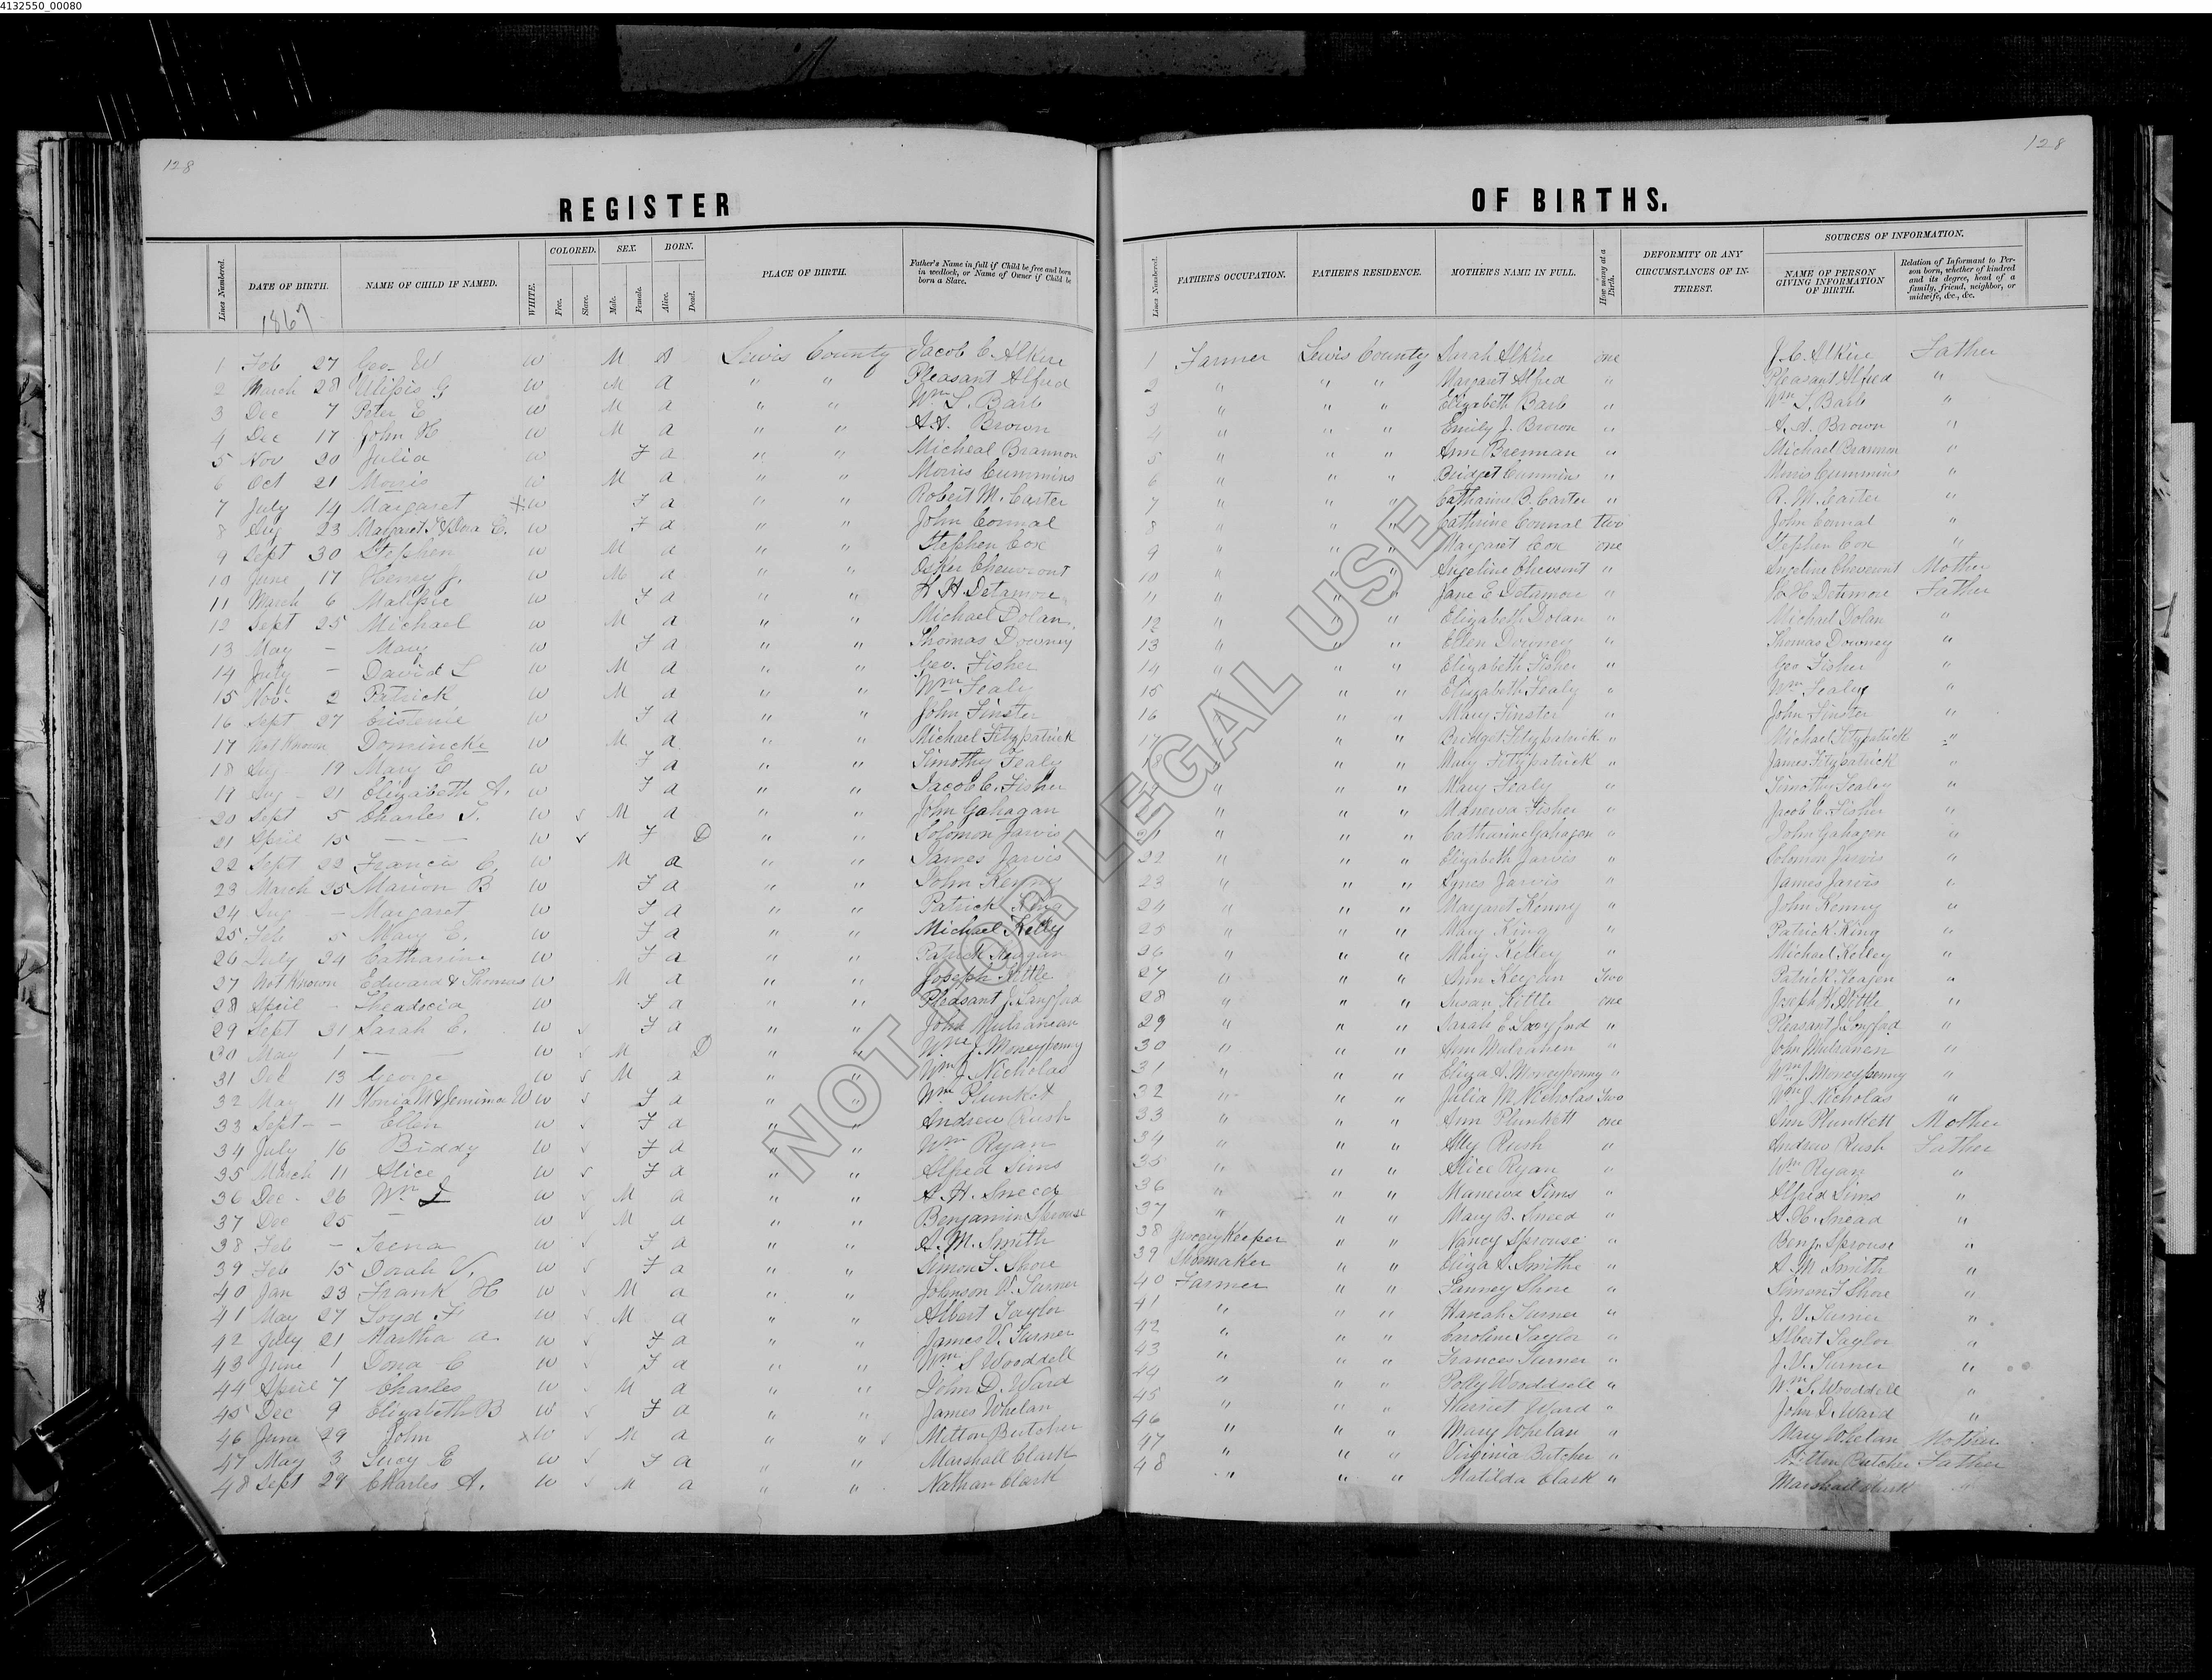 4132550_00080
128
128
REGISTER OF BIRTHS.
Lines Numbered. DATE OF BIRTH. NAME OF CHILD IF NAMED. WHITE. COLORED. Free. Slave. SEX. Male. Female. BORN. Alive. Dead. PLACE OF BIRTH. Father's Name in full if Child be free and born in wedlock, or Name of Owner if Child be born a Slave.
Lines Numbered. FATHER'S OCCUPATION. FATHER'S RESIDENCE. MOTHER'S NAME IN FULL. How many at a Birth. DEFORMITY OR ANY CIRCUMSTANCES OF INTEREST. SOURCES OF INFORMATION. NAME OF PERSON GIVING INFORMATION OF BIRTH. Relation of Informant to Person born, whether of kindred and its degree, head of a family, friend, neighbor, or midwife, &c., &c.
1867
1 Feb 27 Geo W W M A Lewis County Jacob C. Alkire
2 March 28 Ulissis G W M a " " Pleasant Alfred
3 Dec 7 Peter E W M a " " Wm L. Barb
4 Dec 17 John H W M a " " A.A. Brown
5 Nov 20 Julia W F a " " Micheal Brannon
6 Oct 21 Morris W M a " " Morris Cummins
7 July 14 Margaret W F a " " Robert M. Carter
8 Aug 23 Margaret & Dora E. W F a " " John Connal
9 Sept 30 Stephen W M a " " Stephen Cox
10 June 17 Henry J. W M a " " Osker Cheuvront
11 March 6 Malissie W F a " " H Detamore
12 Sept 25 Michael W M a " " Michael Dolan
13 May - Mary W F a " " Thomas Downey
14 July - David L W M a " " Geo. Fisher
15 Nov. 2 Patrick W M a " " Wm Fealy
16 Sept 27 W F a " " John Finster
17 Not Known Domincke W M a " " Michael Fitzpatrick
18 Aug 19 Mary E W F a " " Timothy Fealy
19 Aug - 21 Elizabeth A. W F a " " Jacob C. Fisher
20 Sept 5 Charles T. W M a " " John Gahagan
21 April 15 - - - W F D " " Solomon Jarvis
22 Sept 22 Francis C. W M a " " James Jarvis
23 March 25 Marion B W F a " " John Kenny
24 Aug - Margaret W F a " " Patrick King
25 Feb 5 Mary E. W F a " " Michael Kelly
26 July 24 Catharine W F a " " Patrick Keagan
27 Not Known Edward & Thomas W M a " " Joseph Kittle
28 April - Theadocia W F a " " Pleasant J. Langford
29 Sept 21 Sarah C. W F a " " John Mulranean
30 May 1 - - W M D " " Wm J. Moneypenny
31 Dec 13 George W M a " " Wm J Nicholas
32 May 11 & Jemima W W F a " " Wm Plunket
33 Sept - - Ellen W F a " " Andrew Rush
34 July 16 Biddy W F a " " Wm Ryan
35 March 11 Alice W F a " " Alfred Sims
36 Dec. 26 Wm W M a " " A. H. Sneed
37 Dec 25 - W M a " " Benjamin Sprouse
38 Feb - W F a " " A. M. Smith
39 Feb 15 Dorah V. W F a " " Simon F. Shore
40 Jan 23 Frank H W M a " " Johnson V. Turner
41 May 27 Loyd F W M a " " Albert Taylor
42 July 21 Martha A W F a " " James V. Turner
43 June 1 Dona C W F a " " Wm S Wooddell
44 April 7 Charles W M a " " John D. Ward
45 Dec 9 Elizabeth B W F a " " James Whelan
46 June 29 John W M a " " Milton Butcher
47 May 3 Lucy E W F a " " Marshall Clark
48 Sept 24 Charles A. W M a " " Nathan Clark
1 Farmer Lewis County Sarah Alkire one J. C. Alkire Father
2 " " " Margaret Alfred " Pleasant Alfred "
3 " " " Elizabeth Barb " Wm L. Barb "
4 " " " Emily J. Brown " A. A. Brown "
5 " " " Ann Brennan " Michael Brannon "
6 " " " Bridget Cummins " Morris Cummins "
7 " " " Catharine B. Carter " R. M. Carter "
8 " " " Cathrine Connal Two John Connal "
9 " " " Margaret Cox one Stephen Cox "
10 " " " Angeline Chevront " Angeline Cheveront Mother
11 " " " Jane E Detamore " H Detimore Father
12 " " " Elizabeth Dolan " Michael Dolan "
13 " " " Ellen Downey " Thomas Downey "
14 " " " Elizabeth Fisher " Geo Fisher "
15 " " " Elizabeth Fealy " Wm Fealy "
16 " " " Mary Finster " John Finster "
17 " " " Bridget Fitzpatrick " Michael Fitzpatrick "
18 " " " Mary Fitzpatrick " James Fitzpatrick "
" " " Mary Fealy " Timothy Fealey "
" " " Manerva Fisher " Jacob C. Fisher "
21 " " " Catharine Gahagan " John Gahagen "
22 " " " Elizabeth Jarvis " Solomon Jarvis "
23 " " " Agnes Jarvis " James Jarvis "
24 " " " Margaret Kenny " John Kenny "
25 " " " Mary King " Patrick King "
26 " " " Mary Kelley " Michael Kelley "
27 " " " Ann Keegan Two Patrick Keagen "
28 " " " Susan Kittle one Joseph Kittle "
29 " " " Sarah E Langford " Pleasant J. Longford "
30 " " " Ann Mulranen " John Mulranen "
31 " " " Eliza A. Moneypenny " Wm J. Moneypenny "
32 " " " Julia M Nicholas Two Wm J Nicholas "
33 " " " Ann Plunkett one Ann Plunkett Mother
34 " " " Ally Rush " Andrew Rush Father
35 " " " Alice Ryan " Wm Ryan "
36 " " " Manerva Sims " Alfred Sims "
37 " " " Mary B. Sneed " A. H. Snead "
38 Grocery Keeper " " Nancy Sprouse " Benj. Sprouse "
39 Shoemaker " " Eliza A. Smithe " A M Smith "
40 Farmer " " Fanney Shore " Simon F Shore "
41 " " " Hanah Turner " J. V. Turner "
42 " " " Caroline Taylor " Albert Taylor "
43 " " " Frances Turner " J. V. Turner "
44 " " " Polly Wooddell " Wm S. Wooddell "
45 " " " Harriet Ward " John D. Ward "
46 " " " Mary Whelan " Mary Whelan Mother
47 " " " Virginia Butcher " Milton Butcher Father
48 " " " Matilda Clark " Marshall Clark "
NOT FOR LEGAL USE